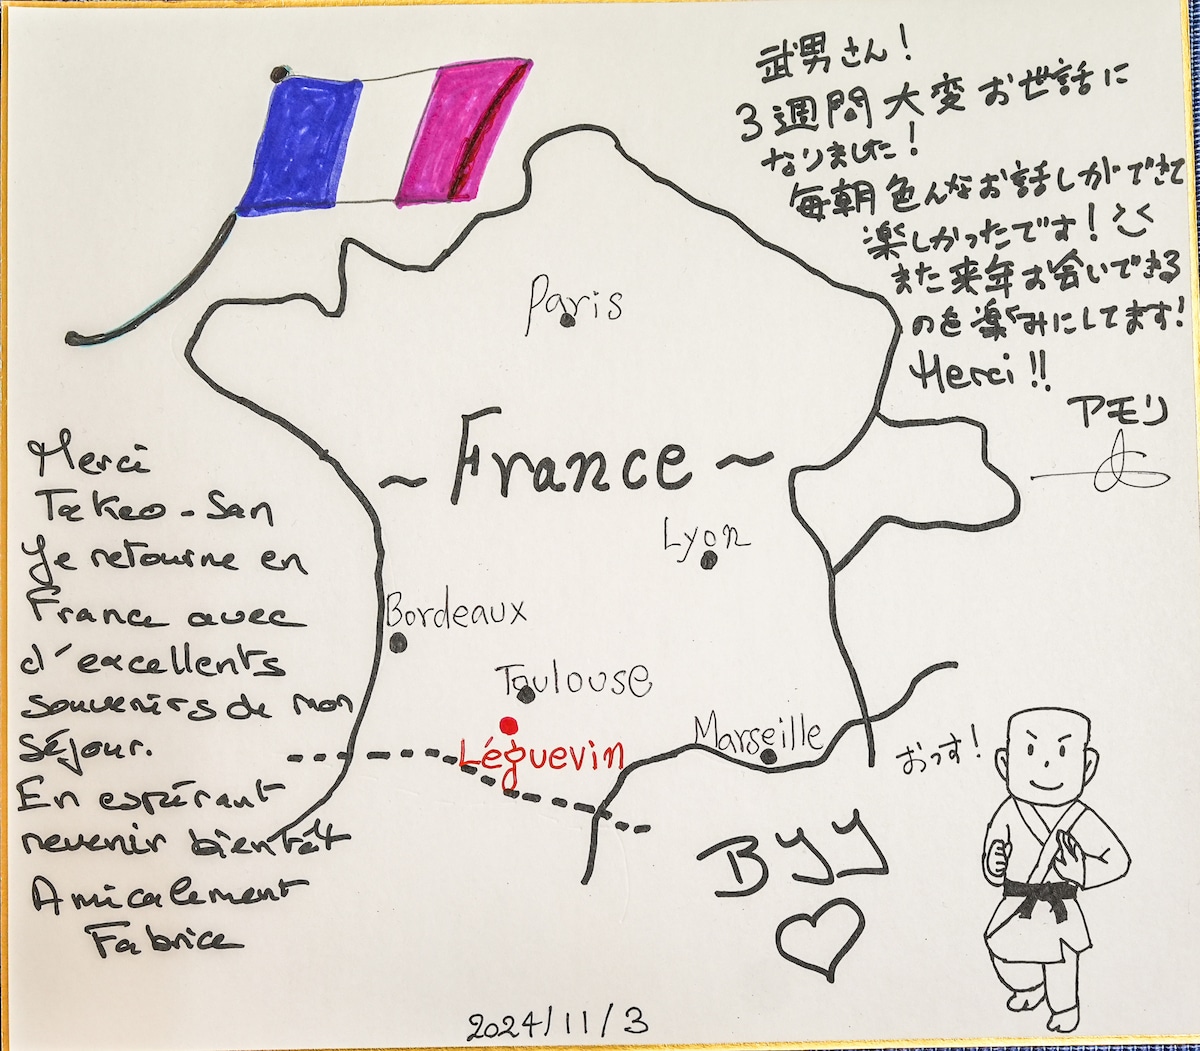 武男さん!
3週間大変お世話に
なりました!
毎朝色んなお話しができて
楽しかったです!
また来年お会いできる
のを楽しみにしてます!
Merci!!
アモリ
Paris
~ France ~
Lyon
Bordeaux
Toulouse
Léguevin
Marseille
Merci
Takeo-San
Je retourne en
France avec
d'excellents
souvenirs de mon
séjour.
En espérant
revenir bientôt
Amicalement
Fabrice
おっす!
BYY
2024/11/3